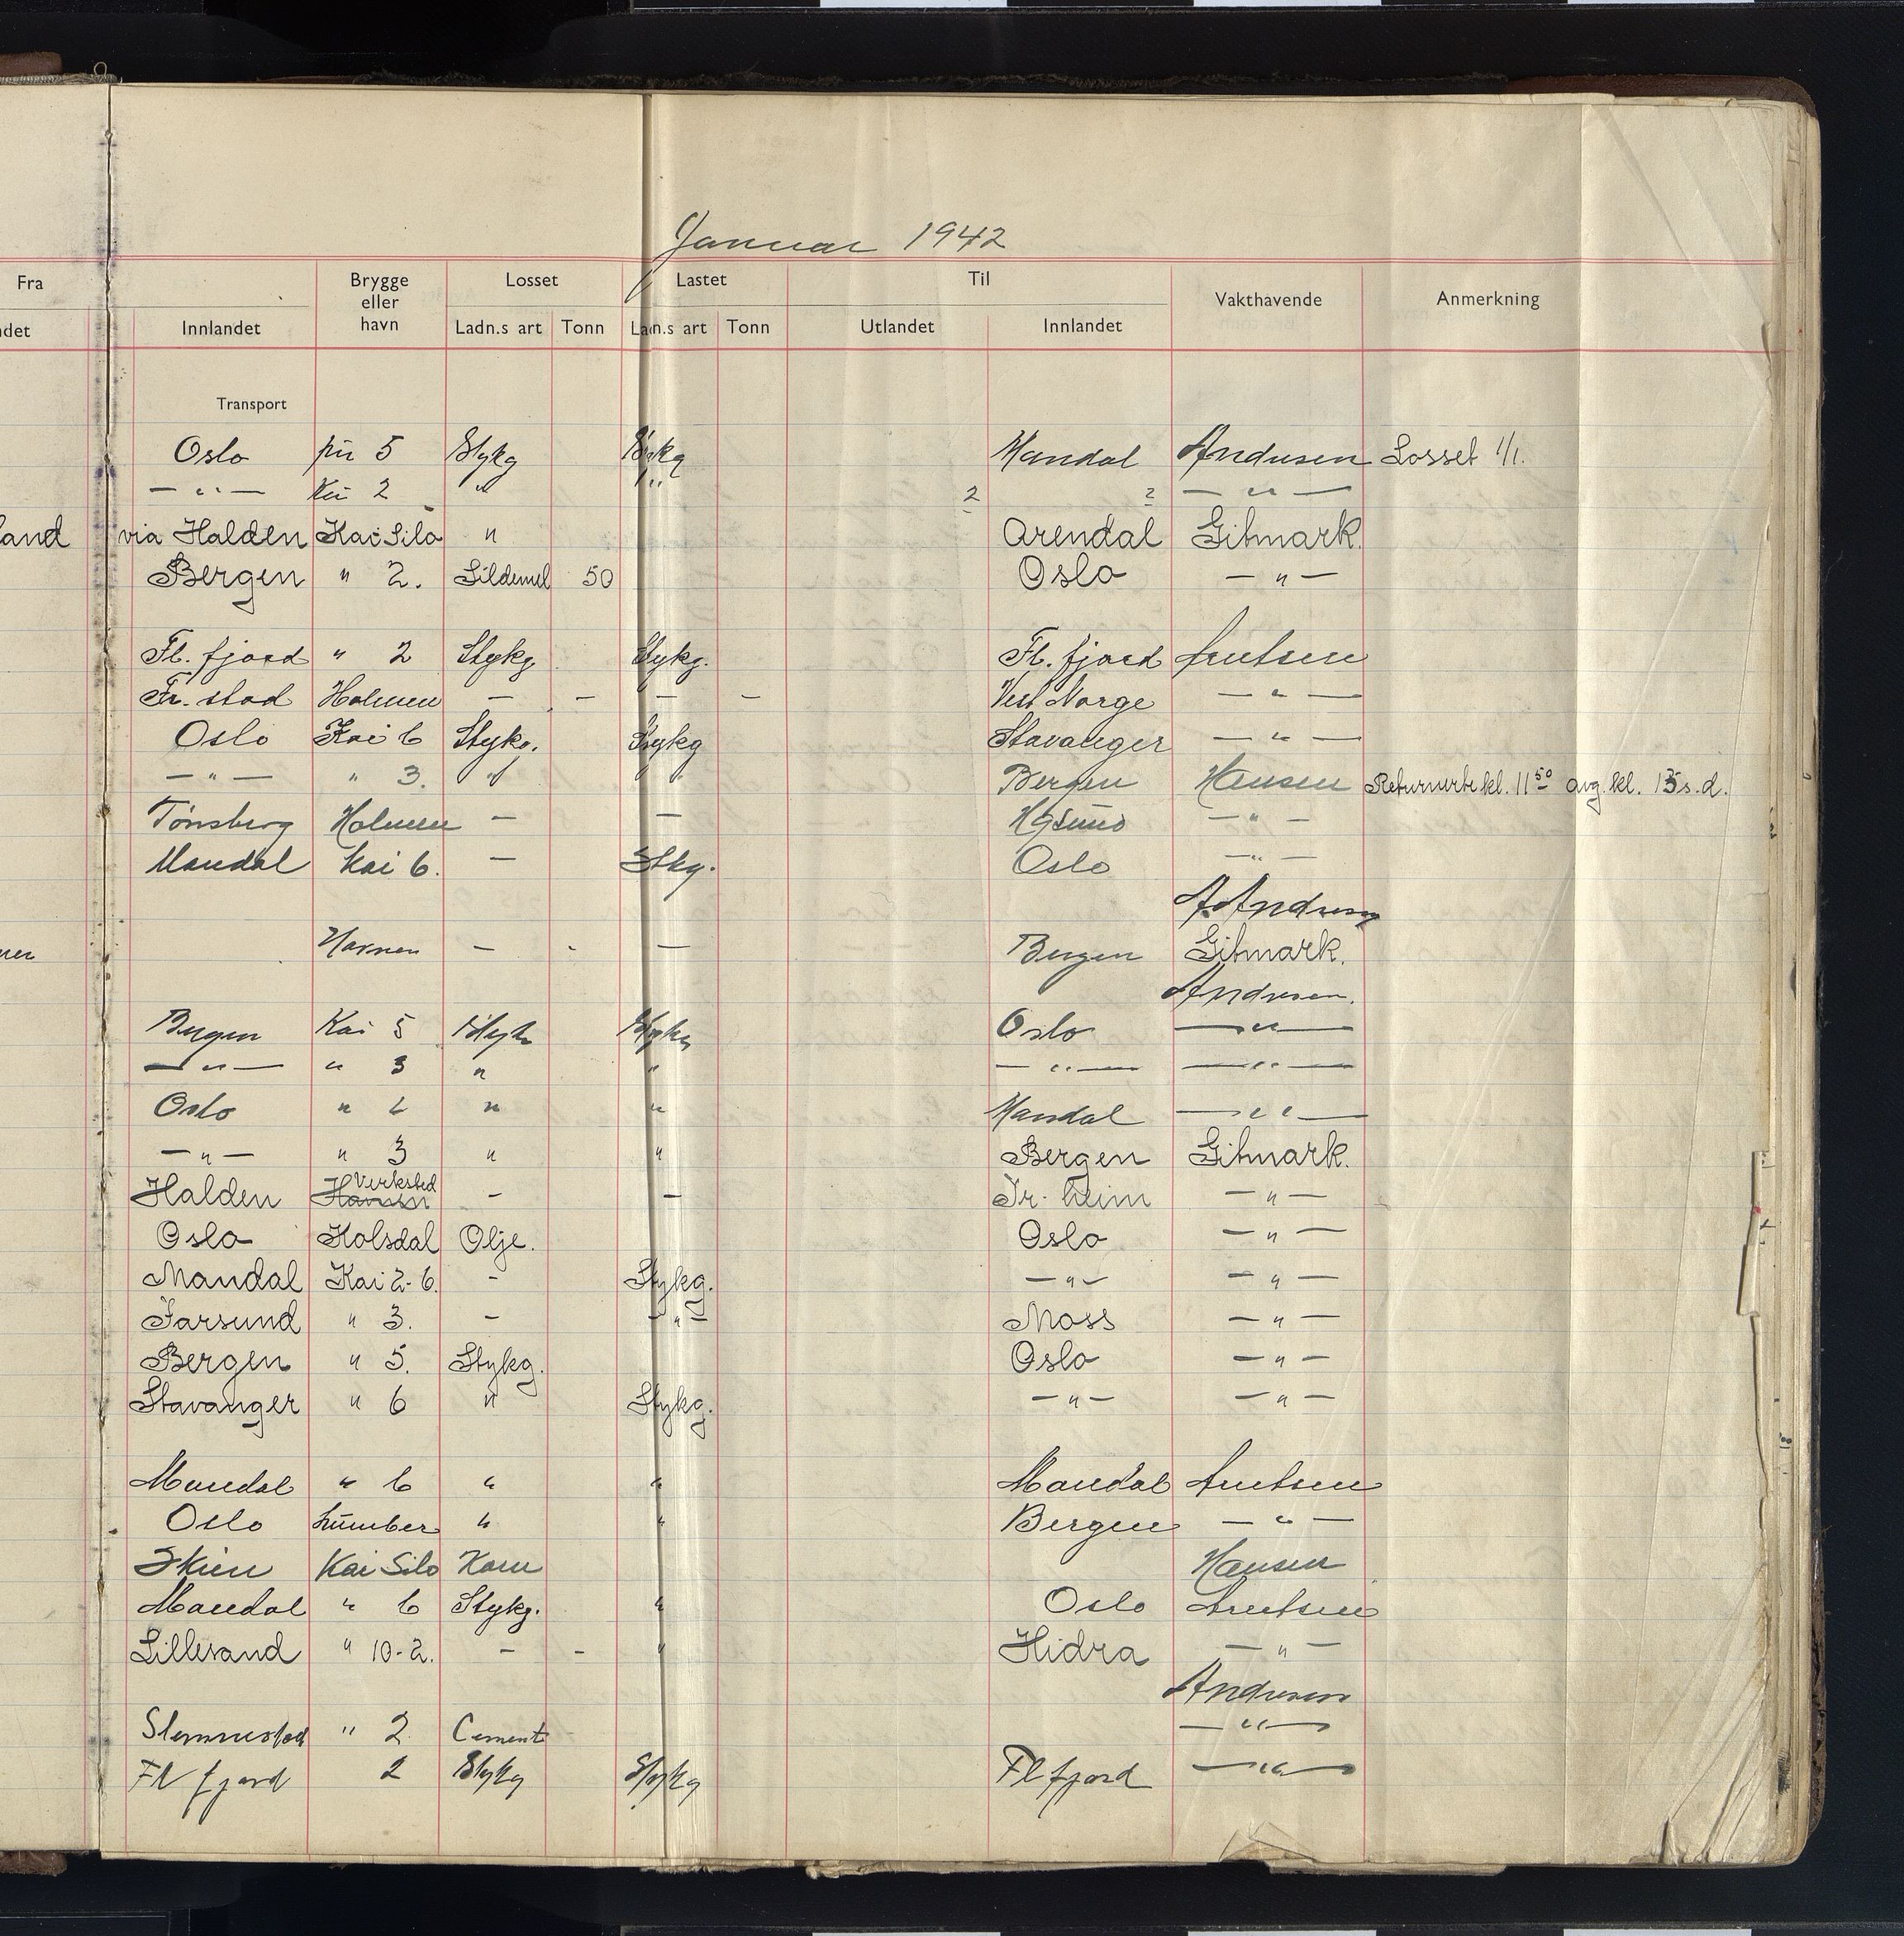 Januar 1942
Fra Brygge eller havn Losset Lastet Til Vakthavende Anmerkning
Innlandet Ladn.s art Tonn Ladn.s art Tonn Utlandet Innlandet
Transport
Oslo 5 Stykg Stykg Mandal Andresen Losset 1/1.
— " — 2 " " 2 2 — " —
land via Halden Kai Silo " Arendal Gitmark.
Bergen " 2. Sildemel 50 Oslo — " —
Fl. fjord " 2 Stykg Stykg. Fl. fjord Arntsen
Fr. stad Holmen — — — — Vest Norge — " —
Oslo Kai 6 Stykg. Stykg Stavanger — " —
— " — " 3. " " Bergen Hansen kl. 11 50 avg. kl. s.d.
Tønsberg Holmen — — — " —
Mandal Kai 6. — Stkg. Oslo — " —
A. Andresen
Havnen — - — Bergen Gitmark.
Andresen.
Bergen Kai 5 Stykg Stykg Oslo — " —
— " — " 3 " " — " — — " —
Oslo " " " Mandal — " —
— " — " 3 " " Bergen Gitmark.
Halden Havnen Verksted - — Tr. heim — " —
Oslo Kolsdal Olje. Oslo — " —
Mandal Kai 2-6. - Stykg. — " — — " —
Farsund " 3. - — " — Moss — " —
Bergen " 5. Stykg. Oslo — " —
Stavanger " 6 " Stykg. — " — — " —
Mandal " 6 " " Mandal Arntsen
Oslo Lumber " " Bergen — " —
Skien Kai Silo Korn Hansen
Mandal " 6 Stykg. " Oslo Arntsen
Lillesand " 10-2. - - " Hidra — " —
Andresen
Slemmestad " 2 Cement — " —
Fl fjord 2 Stykg Stykg Fl fjord — " —